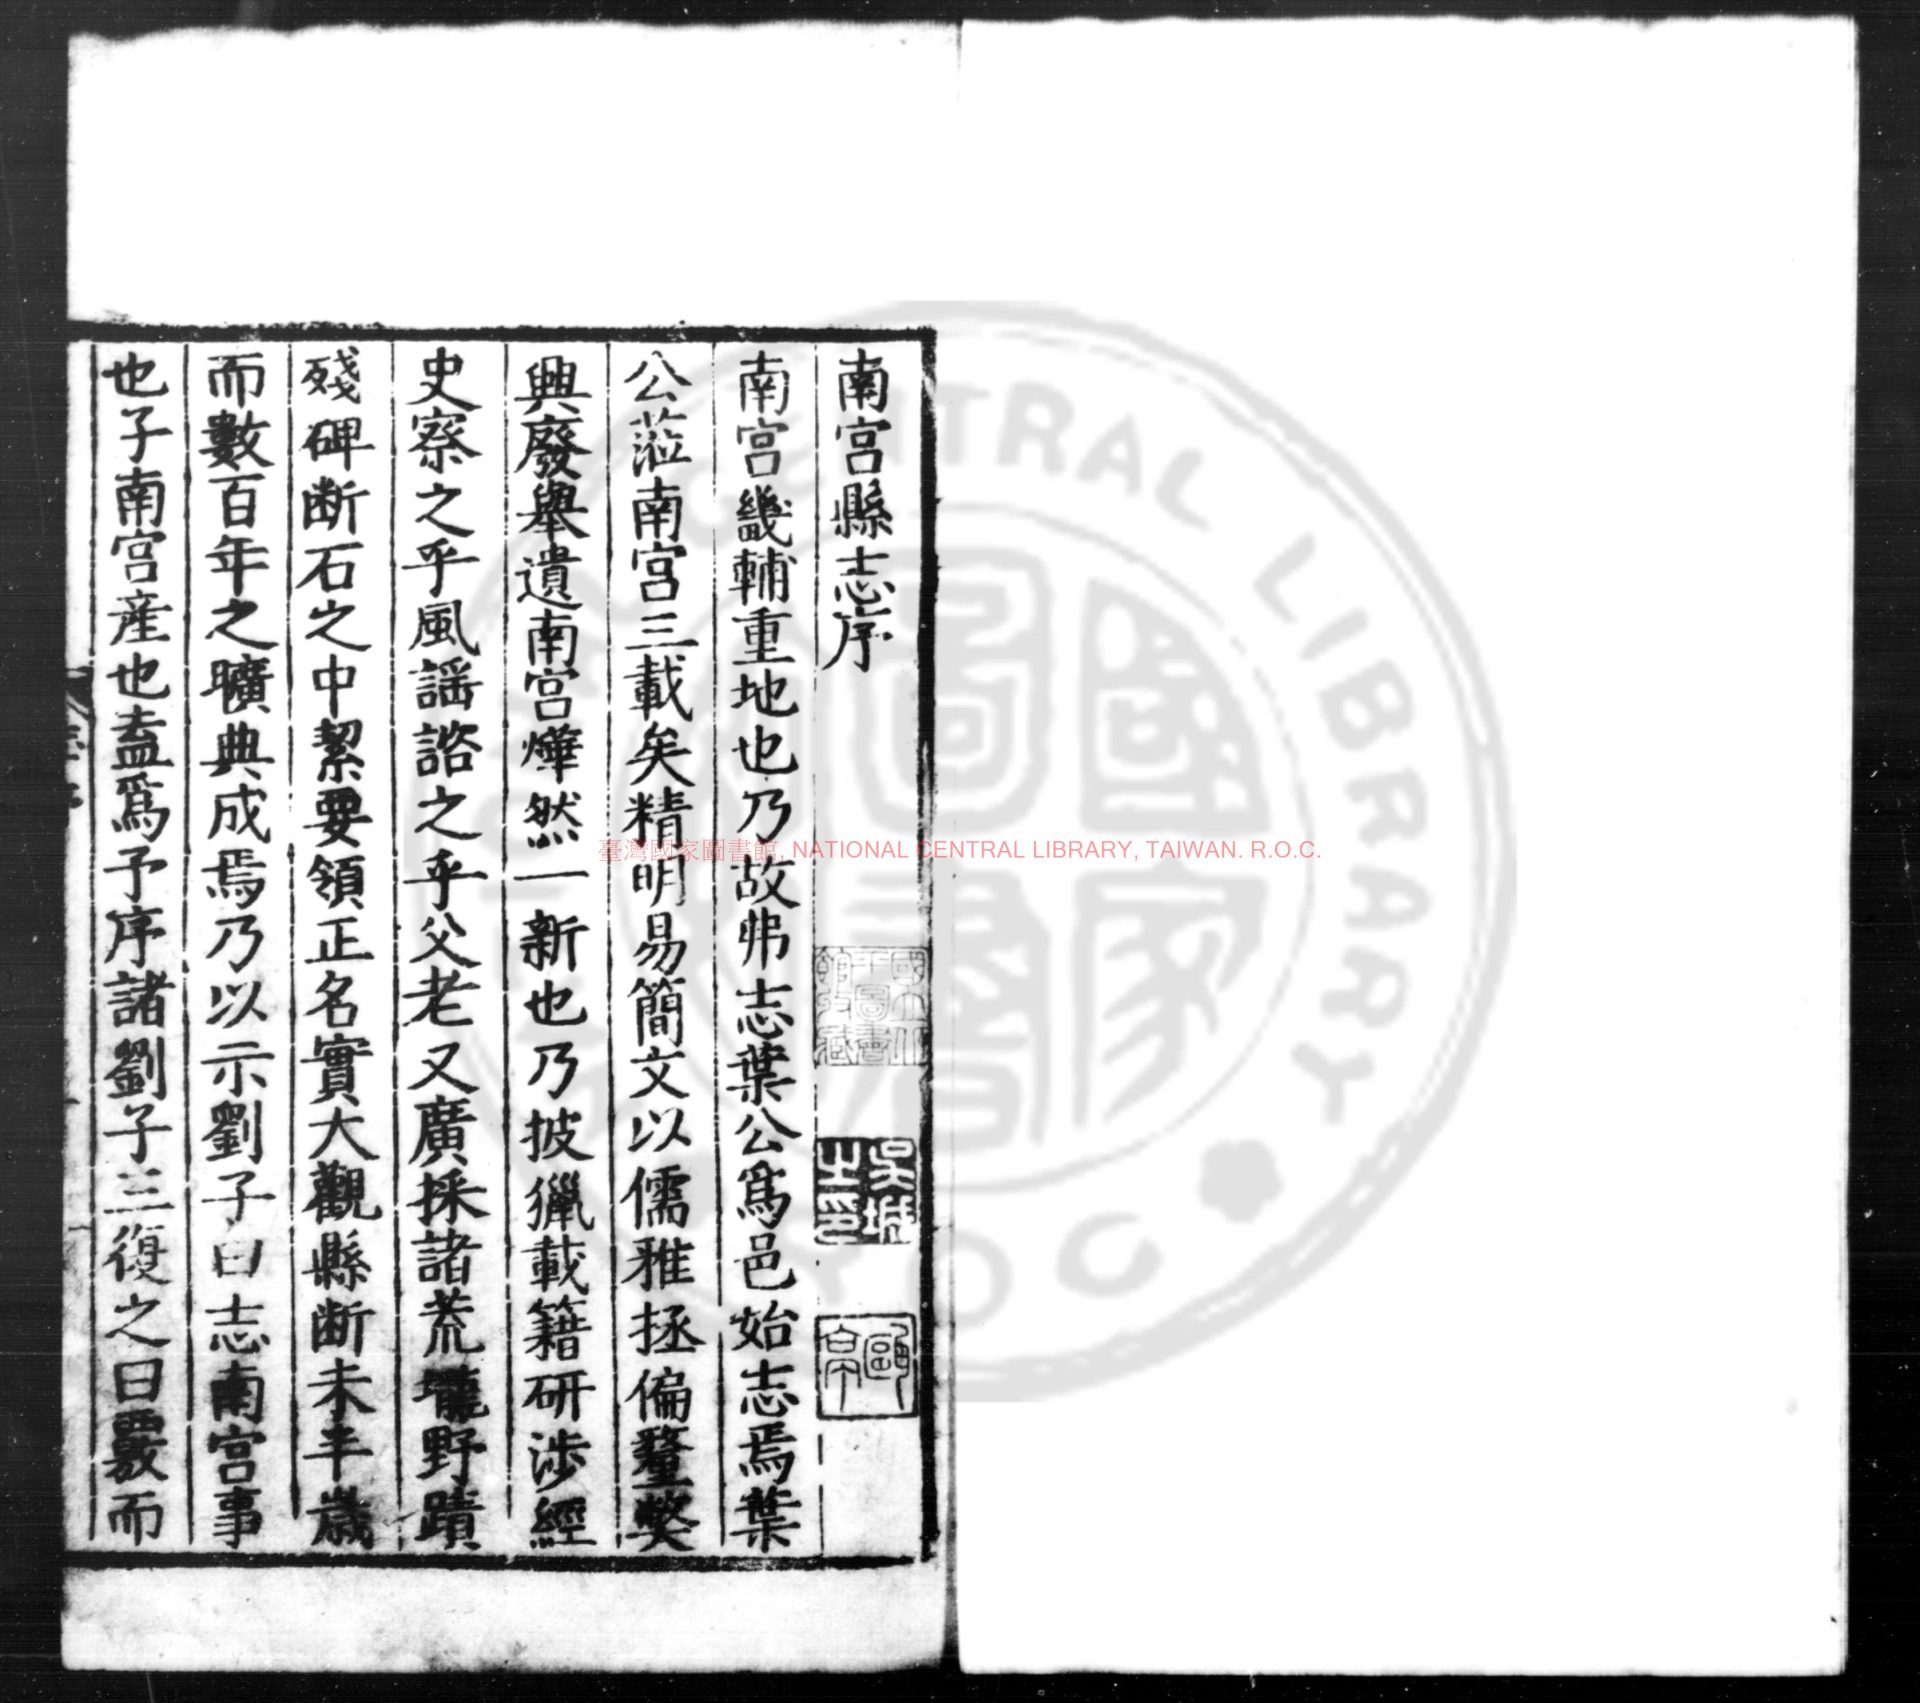 南宫縣志序
南宫畿輔重地也乃故弗志葉公爲邑始志焉葉
公蒞南宫三載矣精明易簡文以儒雅拯偏釐獘
興廢舉遺南宫燁然一新也乃披獵載籍研涉經
史察之乎風謡諮之乎父老又廣採諸荒壠野蹟
殘碑断石之中絜要領正名實大觀縣断未半歲
而數百年之曠典成焉乃以示劉子曰志南宫事
也子南宫産也盍爲予序諸劉子三復之曰覈而
國立北
平圖書
館收藏
臺灣國家圖書館, NATIONAL CENTRAL LIBRARY, TAIWAN. R.O.C.
圖書
國家
CENTRAL LIBRARY